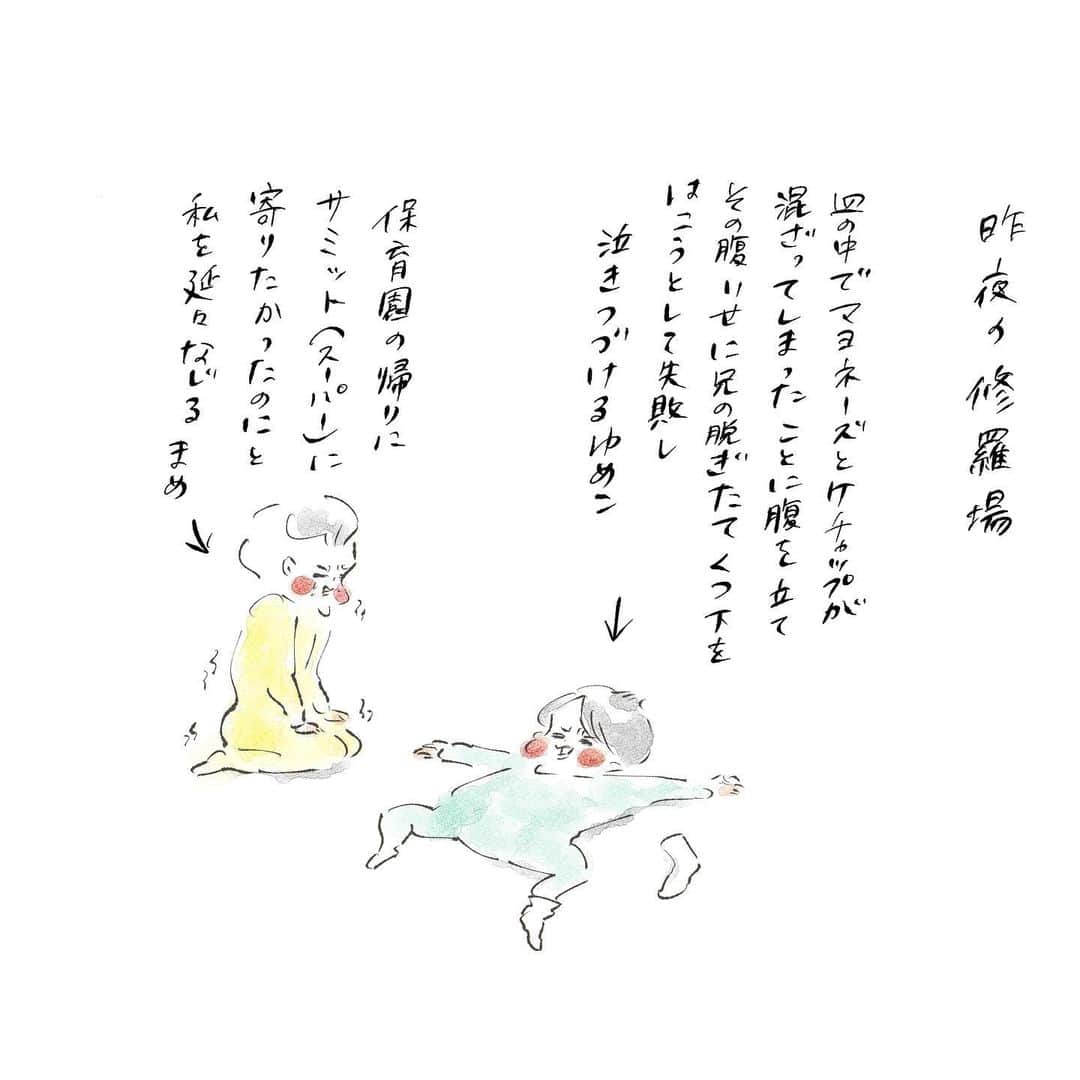 昨夜の修羅場
皿の中でマヨネーズとケチャップが
混ざってしまったことに腹を立て
その腹いせに兄の脱ぎたてくつ下を
はこうとして失敗し
泣きつづけるゆめこ
保育園の帰りに
サミット(スーパー)に
寄りたかったのにと
私を延々なじるまめ